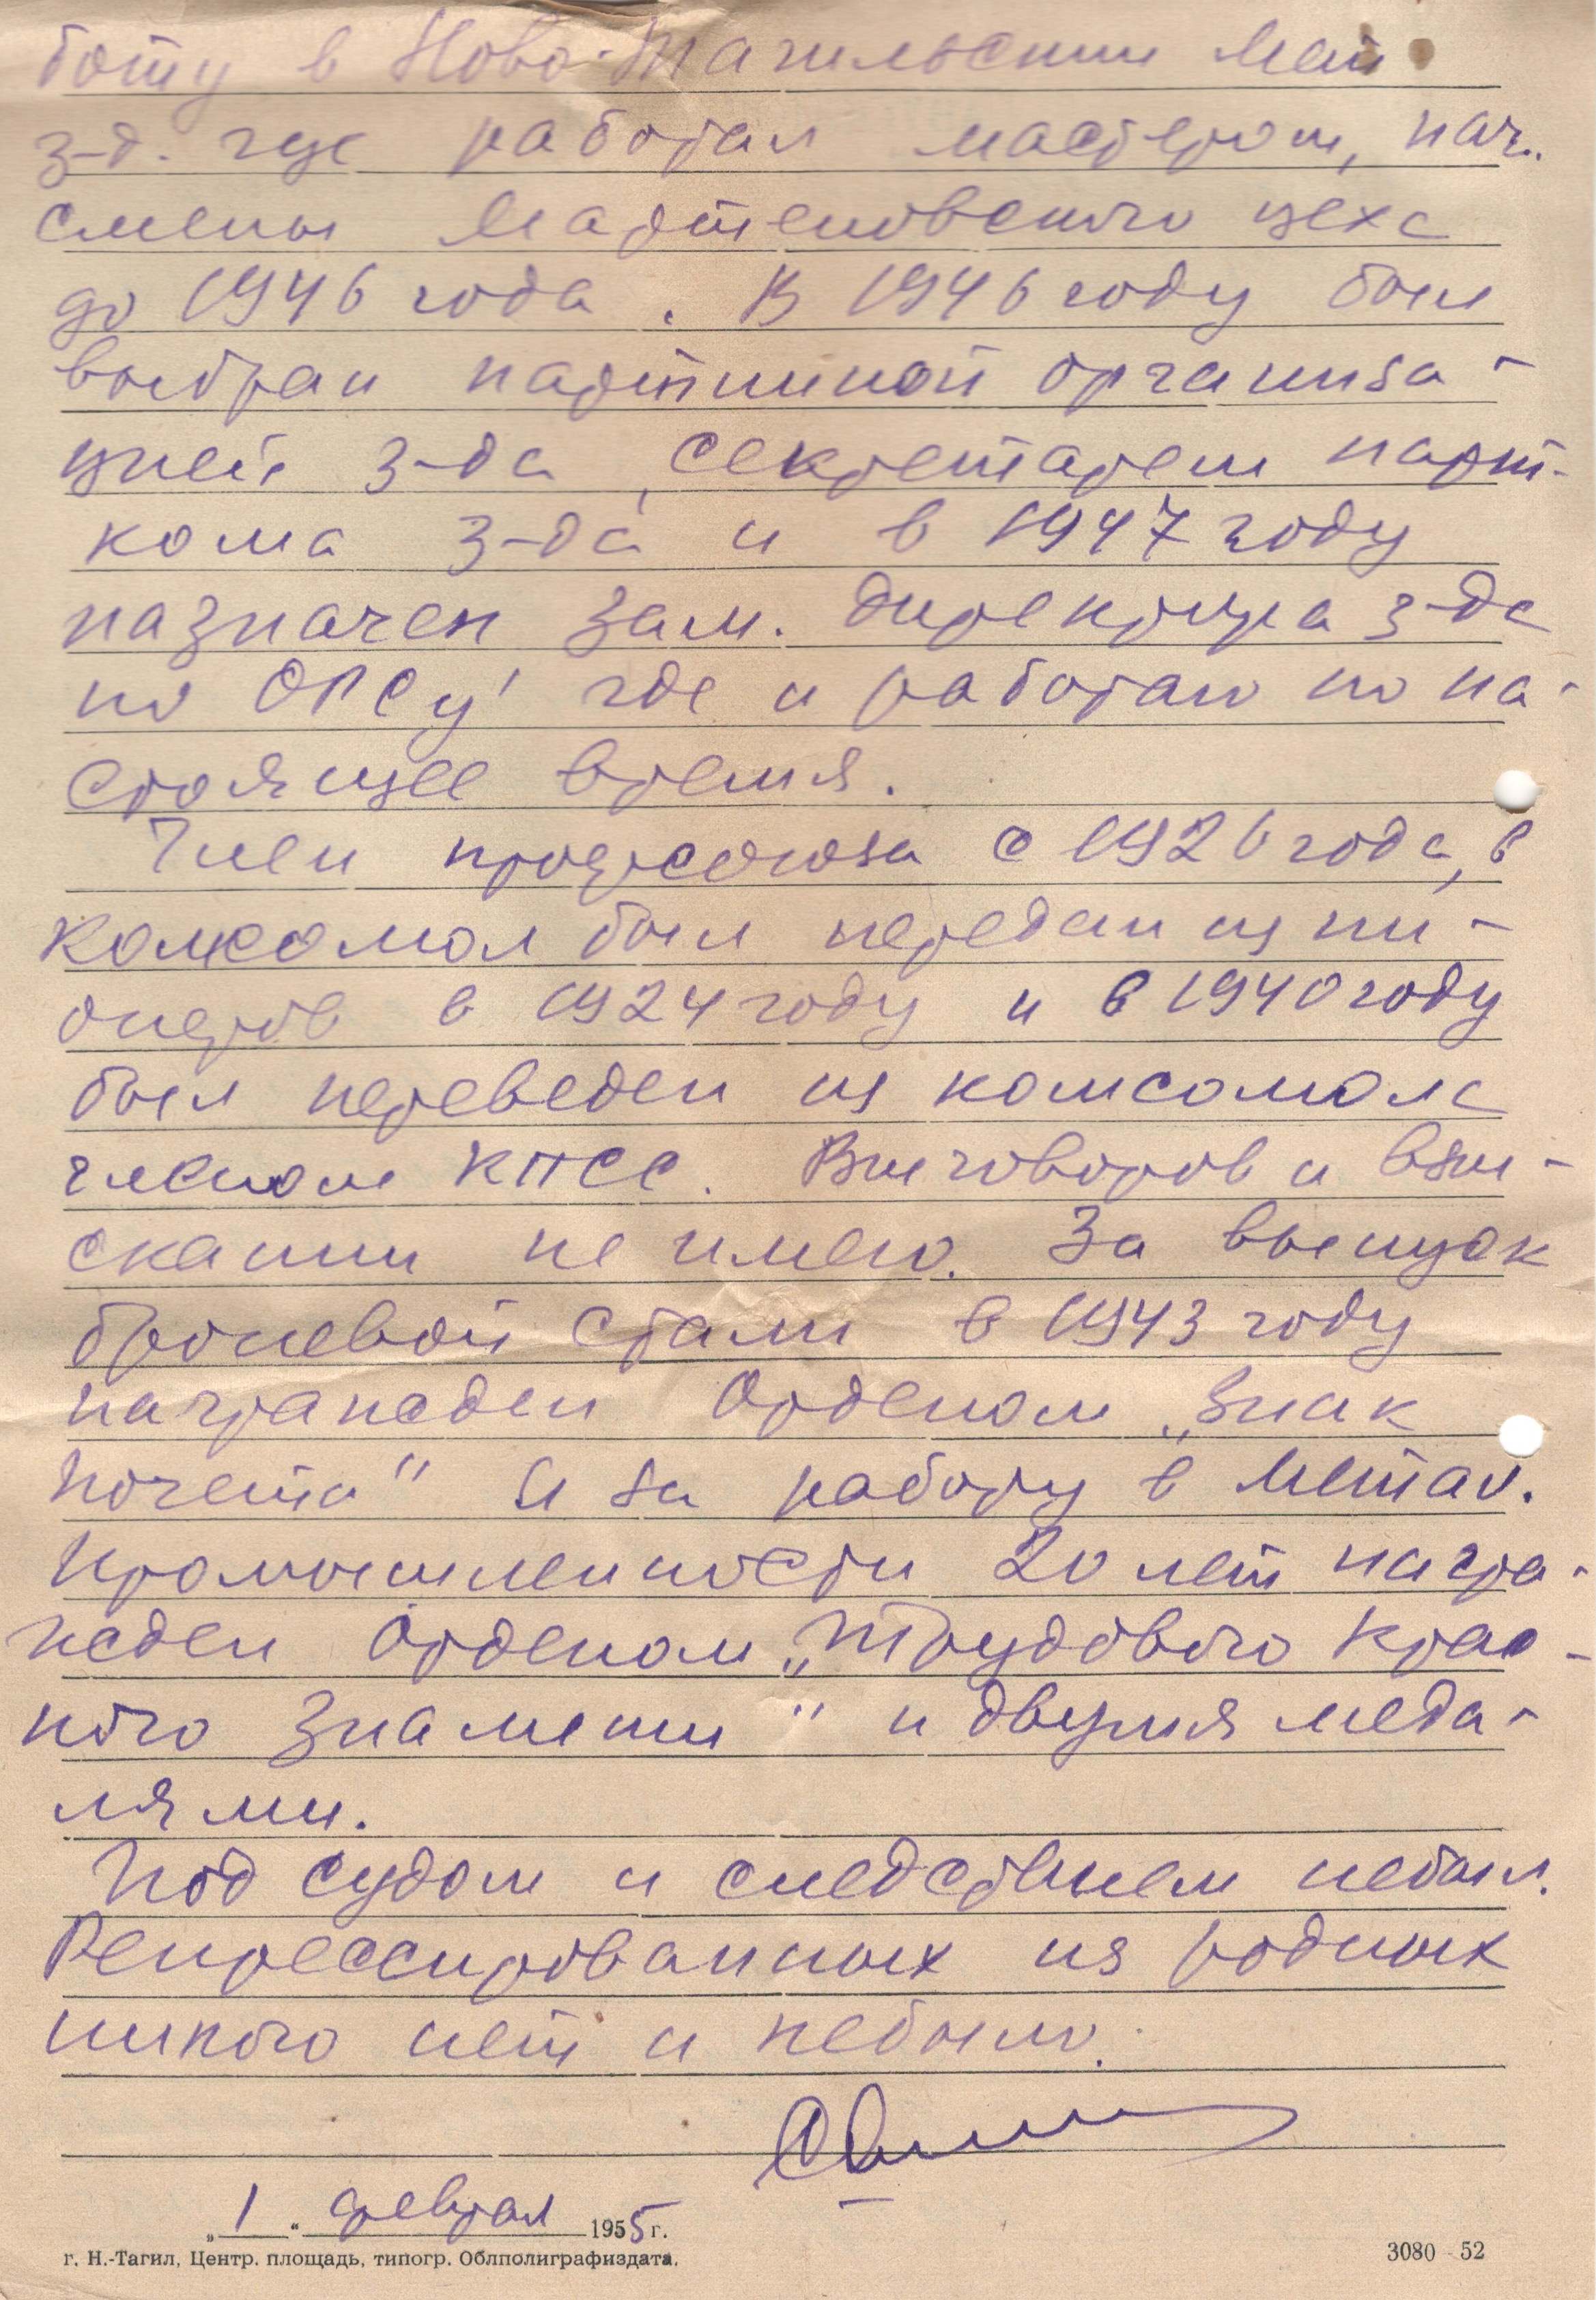 боту в Ново-Тагильский Мет
з-д. где работал мастером, нач.
смены Мартеновского цеха
до 1946 года. В 1946 году был
выбран партийной организа-
цией з-да, секретарем парт-
кома з-да и в 1947 году
назначен Зам. директора з-да
по ОРСу где и работаю по на-
стоящее время.
Член профсоюза с 1926 года, в
комсомол был передан из пи-
онеров в 1924 году и в 1940 году
был переведен из комсомола
членом КПСС. Выговоров и взы-
сканий не имею. За выпуск
броневой стали в 1943 году
награжден Орденом „Знак
почета" И за работу в Метал.
промышленности 20 лет награ-
жден Орденом „Трудового Крас-
ного Знамени" и двумя меда-
лями.
Под судом и следствием небыл.
Репрессированных из родных
никого нет и небыло.
„1" феврал 1955 г.
г. Н.-Тагил, Центр. площадь, типогр. Облполиграфиздата. 3080—52